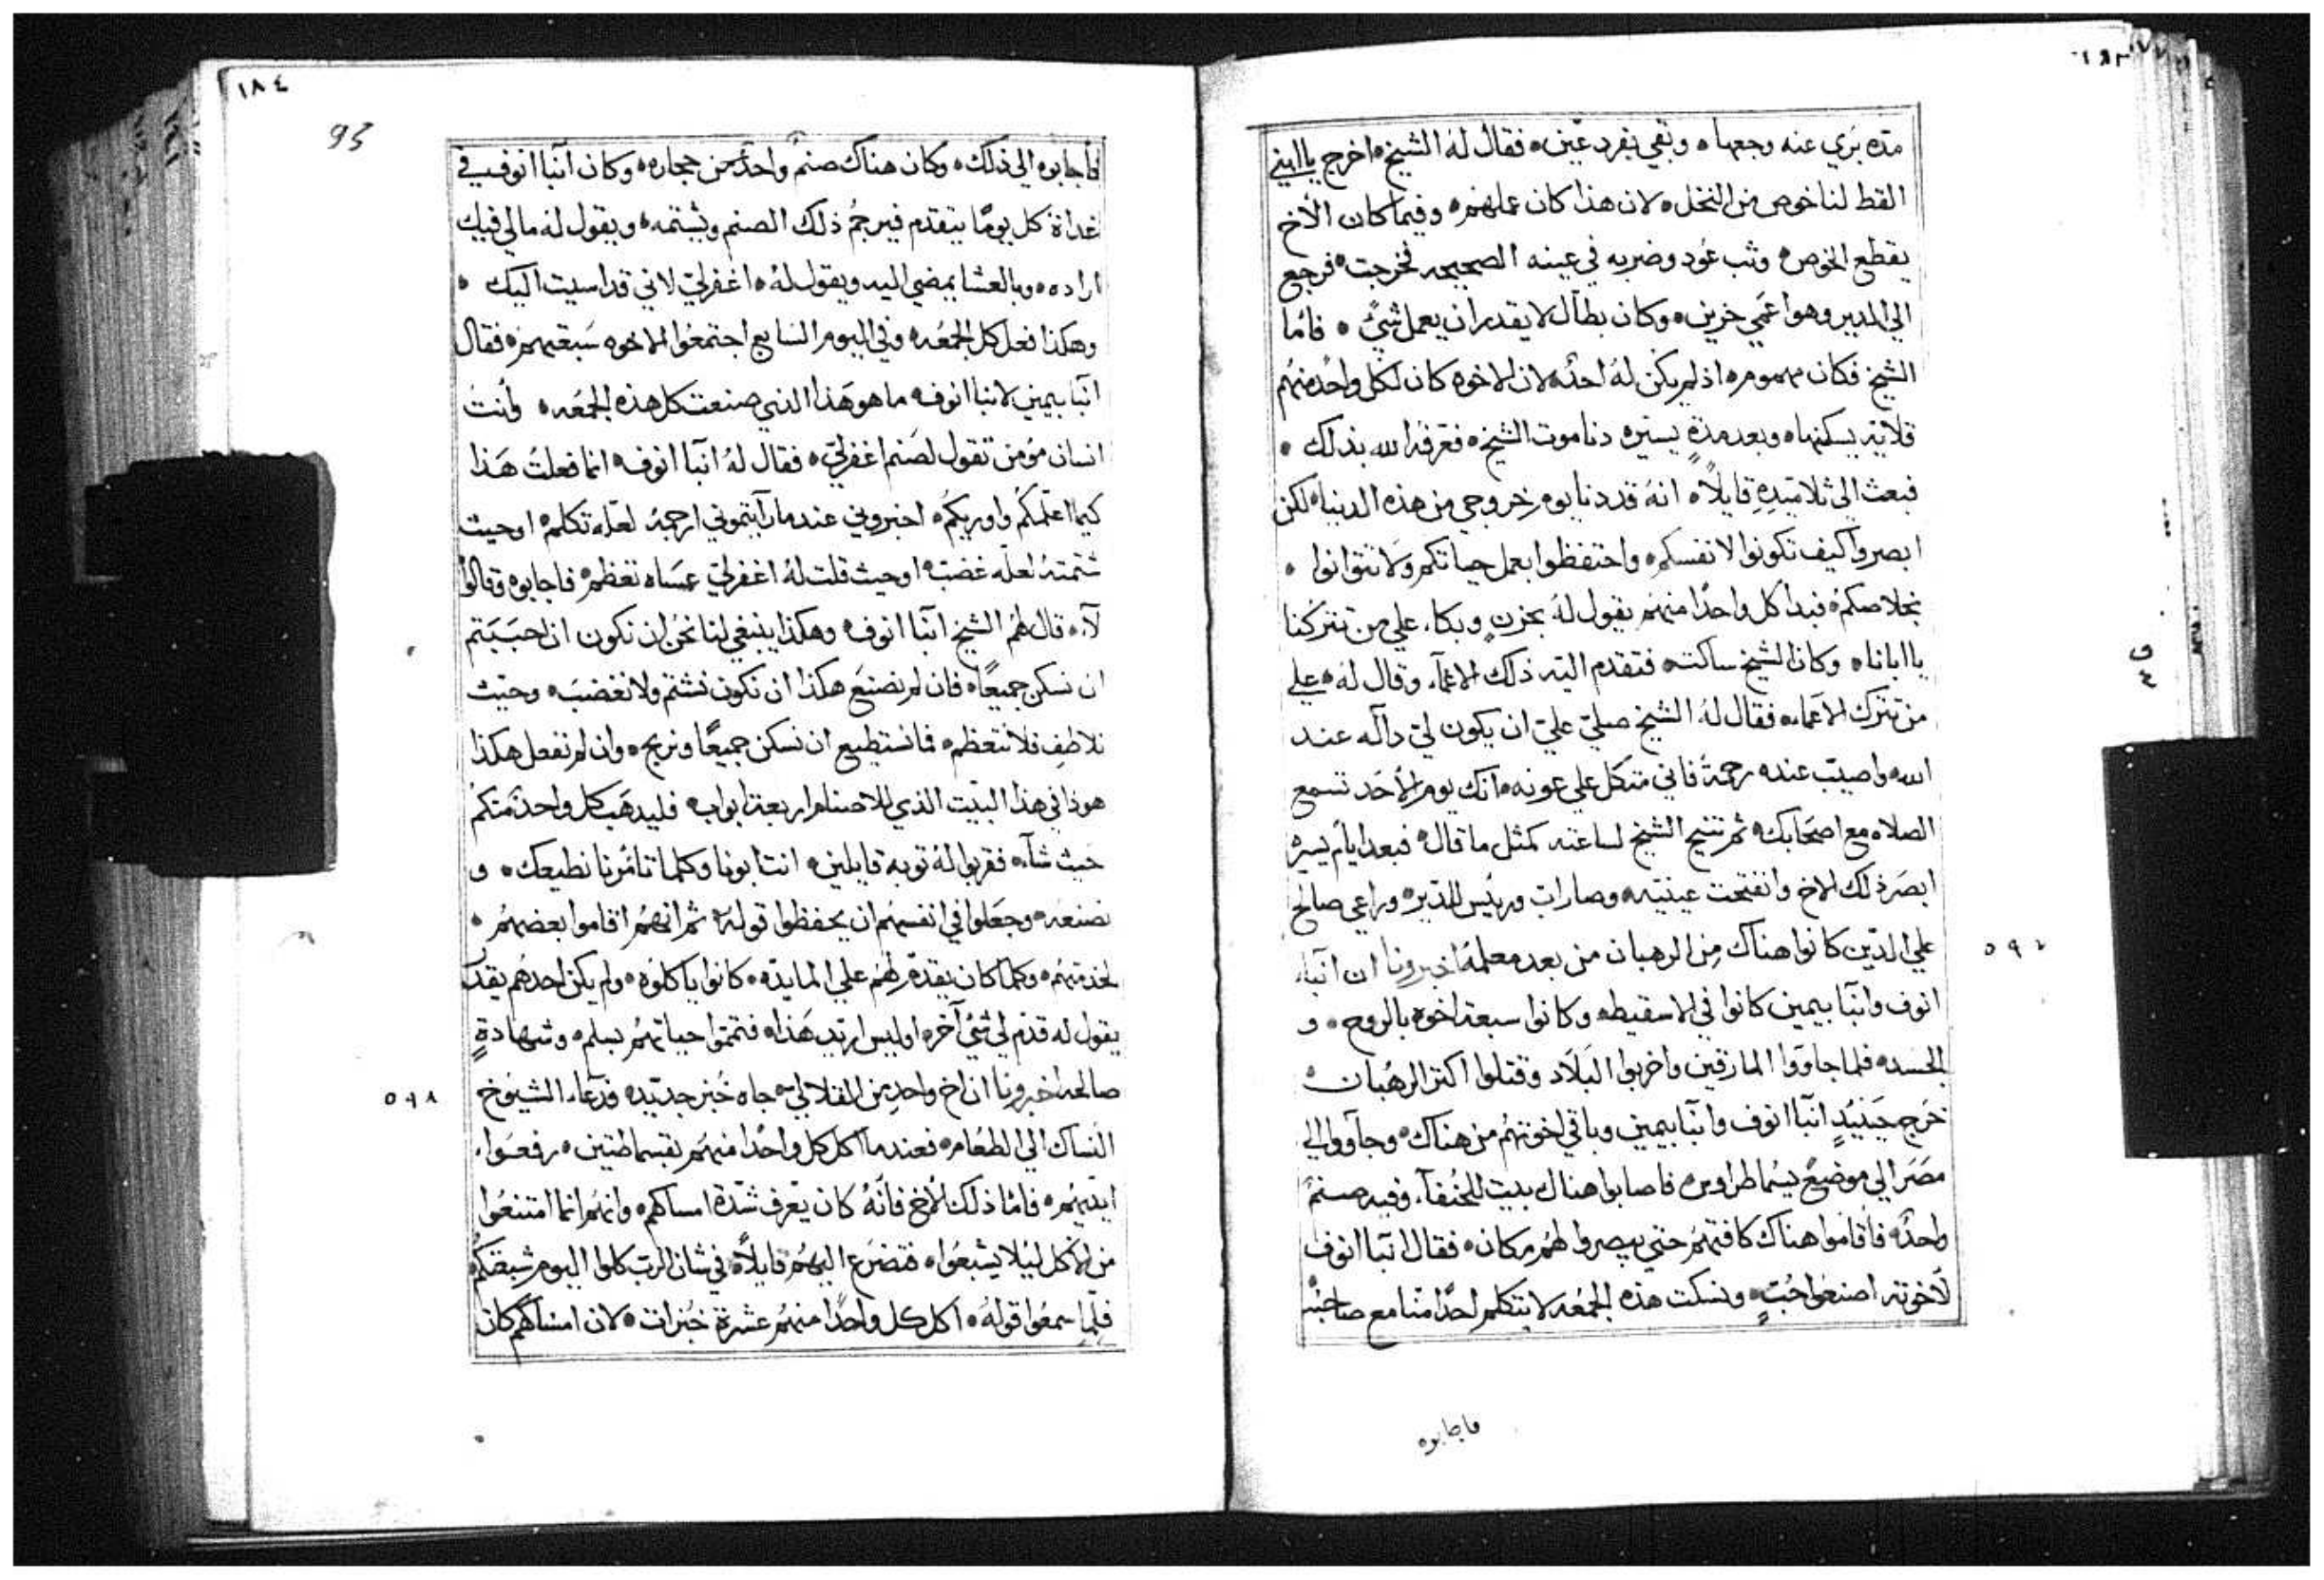 ١٨٣
مده بري عنه وجعها ه وبقي بفرد عين ه فقال له الشيخ ه اخرج يا ابني
القط لنا خوص من النخل ه لان هذا كان عملهم ه وفيما كان الأخ
يقطع الخوص ه وثب عود وضربه في عينه الصحيحه فخرجت ه فرجع
الي الدير وهو اعمي حزين ه وكان بطال لا يقدر ان يعمل شيً ه فاما
الشيخ فكان مهموم ه اذ لم يكن له احد ه لان الاخوه كان لكل واحد منهم
قلايته يسكنها ه وبعد مدةٍ يسيره دنا موت الشيخ ه فعرفه الله بذلك ه
فبعث الي تلاميذهِ قايلاً ه انه قد دنا يوم خروجي من هذه الدنيا ه لكن
ابصروا كيف تكونوا لانفسكم ه واحتفظوا بعمل حياتكم ولا تتوانوا ه
بخلاصكم ه فبدا كل واحدًا منهم يقول له بحزنٍ وبكاء علي من تتركنا
يا ابانا ه وكان الشيخ ساكت ه فتقدم اليه ذلك الاعمآء وقال له ه علي
من تترك الاعما ه فقال له الشيخ صلي علي ان يكون لي دآله عند
الله واصيب عنده رحمة فاني متكل علي عونه ه انك يوم الأحد تسمع
الصلاه مع اصحابك ه ثم تنيح الشيخ لساعته كمثل ما قال ه فبعد ايام يسيره
ابصر ذلك الاخ وانفتحت عينيه ه وصار اب وريس للدير ه وراعي صالح
علي الدين كانوا هناك من الرهبان من بعد معلمه اخبرونا ان انبآ
٥٩٧
انوف وانبآ بيمين كانوا في الاسقيط ه وكانوا سبعة اخوه بالروح ه و
الجسد ه فلما جاووا المازقين واخربوا البلاد وقتلوا اكثر الرهبان ه
خرج حينيدٍ انبآ انوف وانبآ بيمين وباقي اخوتهم من هناك ه وجآووا الي
مصر الي موضع يسما طراوس ه فاصابوا هناك بيت للحنفآء وفيه صنم
واحد ه فاقاموا هناك كافتهم حتي يبصروا لهم مكان ه فقال انبآ انوف
لاخوته اصنعوا حُبٍ ه ونسكت هذه الجمعه لا يتكلم احدًا منا مع صاحبه
فاجابوه
١٨٤
93
فاجابوه الي ذلك ه وكان هناك صنم واحد من حجاره ه وكان انبآ انوف في
غداة كل يومًا يتقدم فيرجم ذلك الصنم ويشتمه ه ويقول له مالي فيك
اراده ه وبالعشا يمضي اليه ويقول له ه اغفر لي لاني قد اسيت اليك ه
وهكذا فعل كل الجمعه ه وفي اليوم السابع اجتمعوا الاخوه سبعتهم ه فقال
انبآ بيمين لانبآ انوف ه ما هو هذا الذي صنعت كل هذه الجمعه ه وانت
انسان مؤمن تقول لصنم اغفر لي ه فقال له انبآ انوف ه انما فعلت هذا
كيما اعلمكم واوريكم ه اخبروني عندما رآيتموني ارجمه لعله تكلم ه او حيث
شتمته لعله غضب ه او حيث قلت له اغفر لي عساه تعظم ه فاجابوه وقالوا
لآ ه قال لهم الشيخ انبآ انوف ه وهكذا ينبغي لنا نحن ان نكون ان احببتم
ان نسكن جميعًا ه فان لم نصنع هكذا ان نكون نشتم ولا نغضب ه وحيث
نلاطف فلا نتعظم ه فما نستطيع ان نسكن جميعًا ونربح ه وان لم نفعل هكذا
هوذا في هذا البيت الذي للاصنام اربعة ابواب ه فليدهب كل واحد منكم
حيث شآء ه فقربوا له توبه قايلين ه انت ابونا وكلما تامرنا نطيعك ه و
نصنعه ه وجعلوا في انفسهم ان يحفظوا قوله ه ثم انهم اقاموا بعضهم ه
لخدمتهم ه وكلما كان يقدم لهم علي المايده ه كانوا ياكلوه ه ولم يكن احدهم يقدر
يقول له قدم لي شي آخر ه او ليس اريد هذا ه فتمموا حياتهم بسلم ه وشهادةٍ
صالحه اخبرونا ان اخ واحد من القلالي ه جاه خبز جديد ه فدعآء الشيوخ
٥٩٨
النساك الي الطعام ه فعندما اكل كل واحدًا منهم بقسماطتين ه رفعوا
ايديهم ه فاما ذلك الأخ فانه كان يعرف شدة امساكهم ه وانهم انما امتنعوا
من الأكل ليلا يشبعوا ه فتضرع اليهم قايلاً ه في شان الرب كلوا اليوم شبعتكم ه
فلما سمعوا قوله ه اكل كل واحدًا منهم عشرة خبزات ه لان امساكهم كان